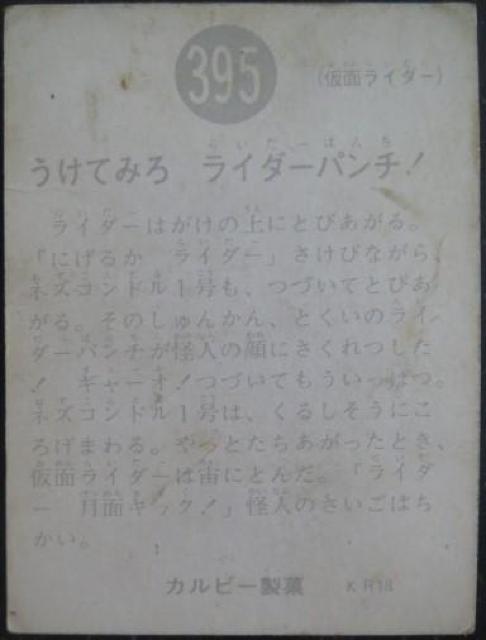 395
(仮面ライダー)
うけてみろ ライダーパンチ!
ライダーはがけの上にとびあがる。
「にげるか ライダー」さけびながら、
ネズコンドル1号も、つづいてとびあ
がる。そのしゅんかん、とくいのライ
ダーパンチが怪人の顔にさくれつした
! ギャーオ!つづいてもういっぱつ。
ネズコンドル1号は、くるしそうにこ
ろげまわる。やっとたちあがったとき、
仮面ライダーは宙にとんだ。「ライダ
ー 月面キック!」怪人のさいごはち
かい。
カルビー製菓 K R18